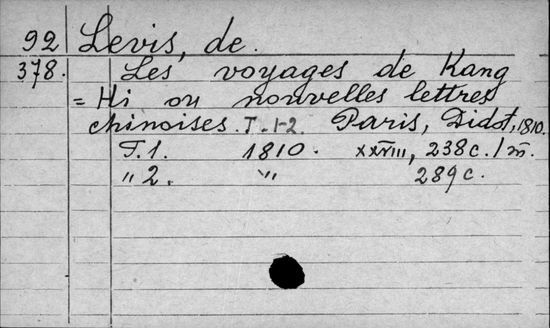 92 Levis, de.
378. Les voyages de Kang
= Hi ou nouvelles lettres
chinoises. T. 1-2. Paris, Didot, 1810.
T. 1. 1810. XXVIII, 238 c.
" 2. " 289 c.